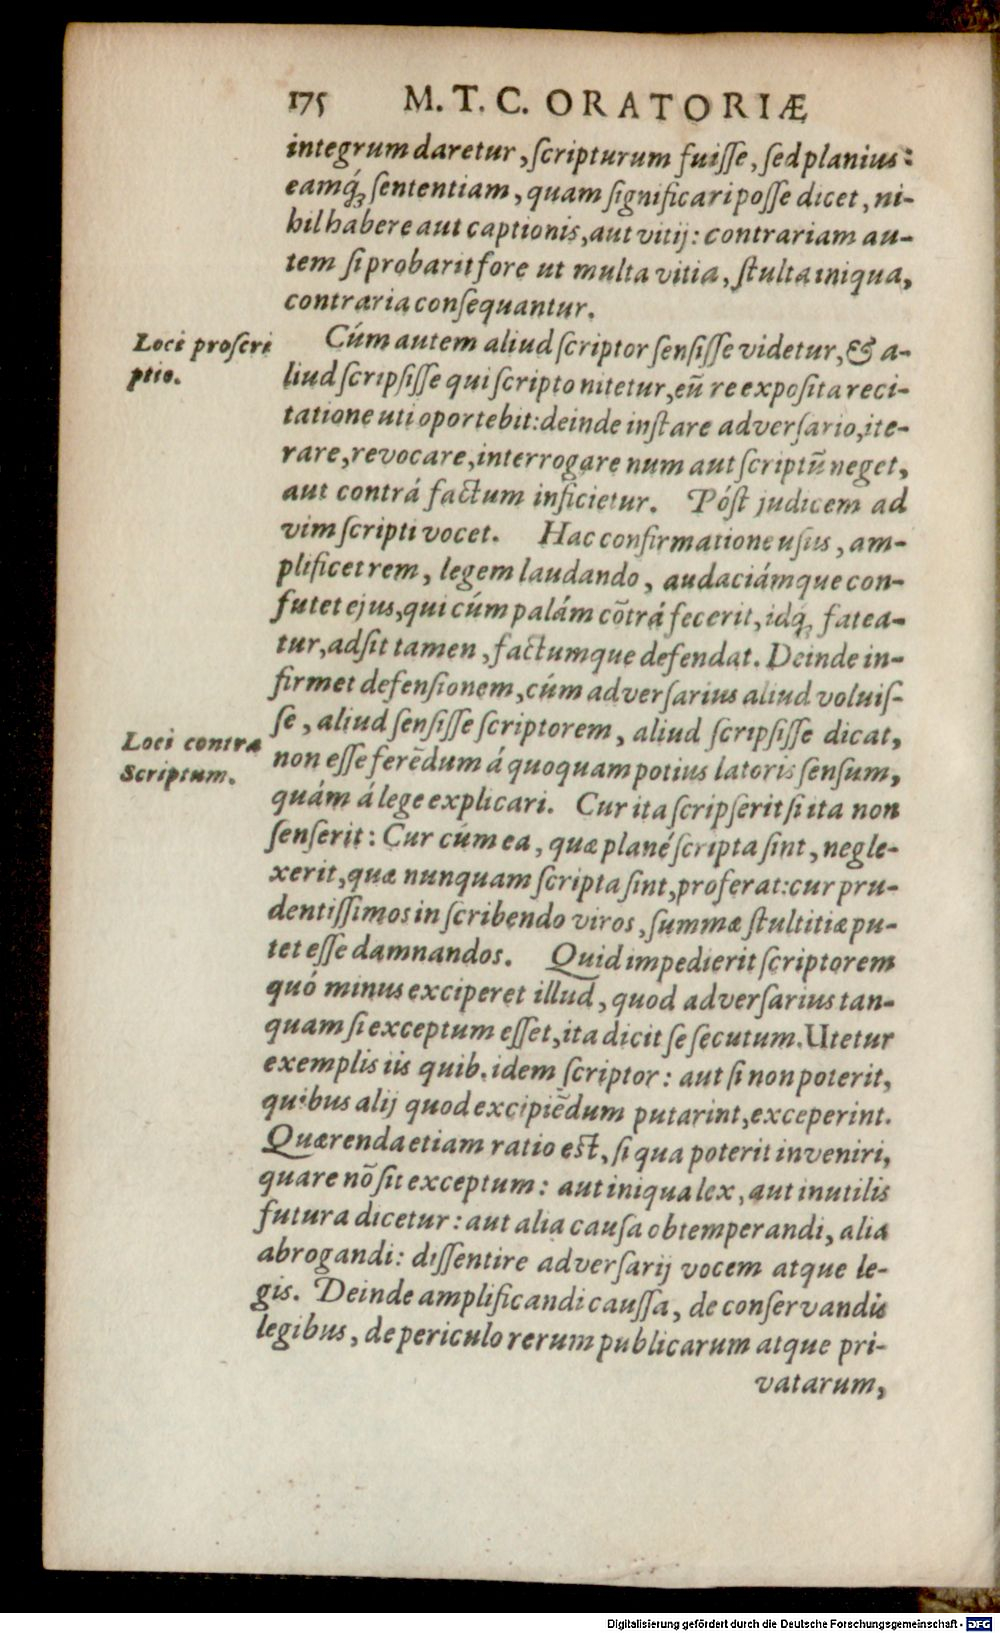 175 M. T. C. ORATORIÆ
integrum daretur, ſcripturum fuiſſe, ſed planius:
eamq́ꝫ ſententiam, quam ſignificari poſſe dicet, ni-
hil habere aut captionis, aut vitij: contrariam au-
tem ſi probarit fore ut multa vitia, ſtulta iniqua,
contraria conſequantur.
Loci proſcri
ptio.
Cúm autem aliud ſcriptor ſenſiſſe videtur, & a-
liud ſcripſiſſe qui ſcripto nitetur, eũ re expoſita reci-
tatione uti oportebit: deinde inſtare adverſario, ite-
rare, revocare, interrogare num aut ſcriptũ neget,
aut contrá factum inficietur. Póſt judicem ad
vim ſcripti vocet. Hac confirmatione uſus, am-
plificet rem, legem laudando, audaciámque con-
futet ejus, qui cúm palám cõtrá fecerit, idq́ꝫ fatea-
tur, adſit tamen, factumque defendat. Deinde in-
firmet defenſionem, cúm adverſarius aliud voluiſ-
ſe, aliud ſenſiſſe ſcriptorem, aliud ſcripſiſſe dicat,
Loci contra
Scriptum.
non eſſe ferẽdum á quoquam potius latoris ſenſum,
quám á lege explicari. Cur ita ſcripſerit ſi ita non
ſenſerit: Cur cúm ea, quæ plané ſcripta ſint, negle-
xerit, quæ nunquam ſcripta ſint, proferat: cur pru-
dentiſſimos in ſcribendo viros, ſummæ ſtultitiæ pu-
tet eſſe damnandos. Quid impedierit ſcriptorem
quó minus exciperet illud, quod adverſarius tan-
quam ſi exceptum eſſet, ita dicit ſe ſecutum. Utetur
exemplis iis quib. idem ſcriptor: aut ſi non poterit,
quibus alij quod excipiẽdum putarint, exceperint.
Quærenda etiam ratio eſt, ſi qua poterit inveniri,
quare nõ ſit exceptum: aut iniqua lex, aut inutilis
futura dicetur: aut alia cauſa obtemperandi, alia
abrogandi: diſſentire adverſarij vocem atque le-
gis. Deinde amplificandi cauſſa, de conſervandis
legibus, de periculo rerum publicarum atque pri-
vatarum,
Digitalisierung gefördert durch die Deutsche Forschungsgemeinschaft - DFG